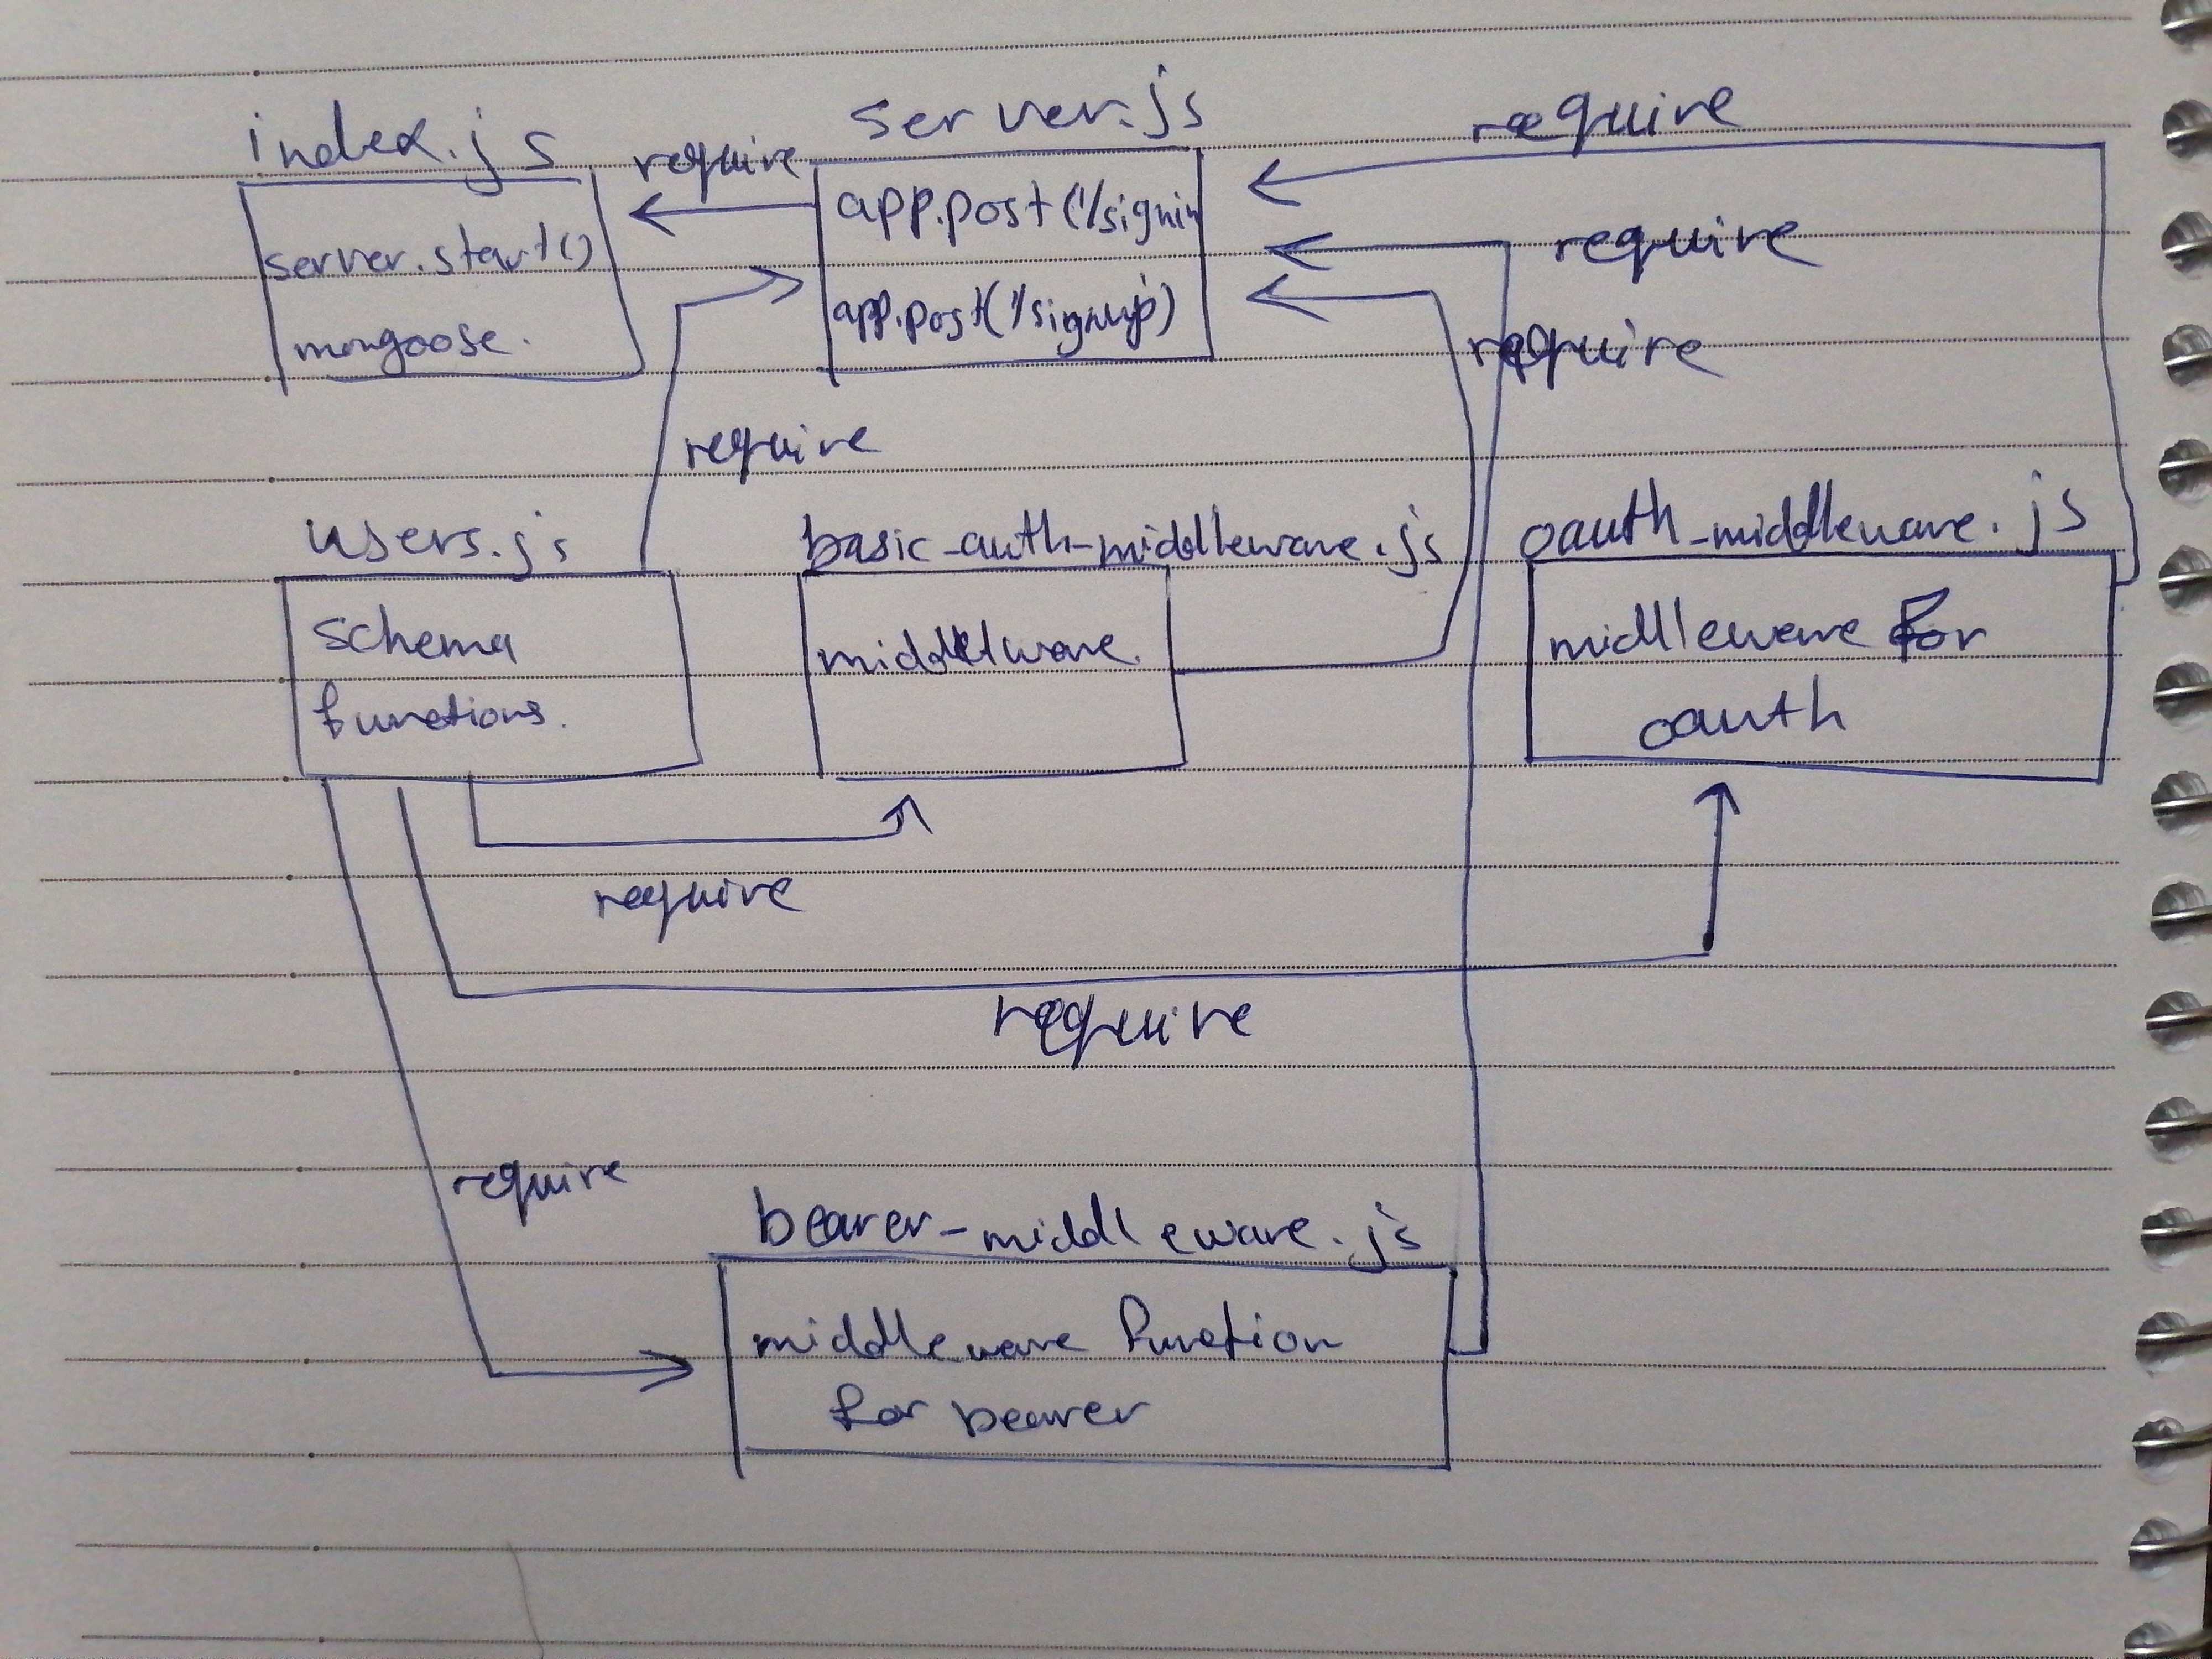 index.js
server.start()
mongoose.
require
server.js
app.post('/signin
app.post('/signup')
require
require
require
require
users.js
schema
functions.
basic-auth-middleware.js
oauth-middleware.js
middleware for
oauth
require
require
require
bearer-middleware.js
middleware function
for bearer